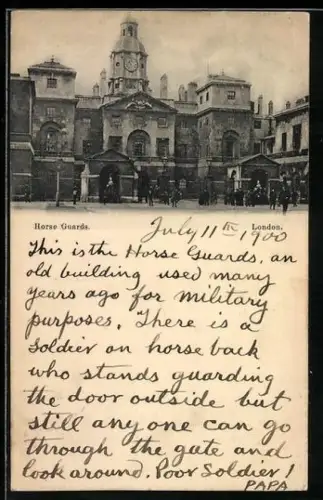 Horse Guards. London.
July 11th 1900
This is the Horse Guards, an
old building used many
years ago for military
purposes. There is a
Soldier on horse back
who stands guarding
the door outside but
still any one can go
through the gate and
look around. Poor Soldier!
PAPA